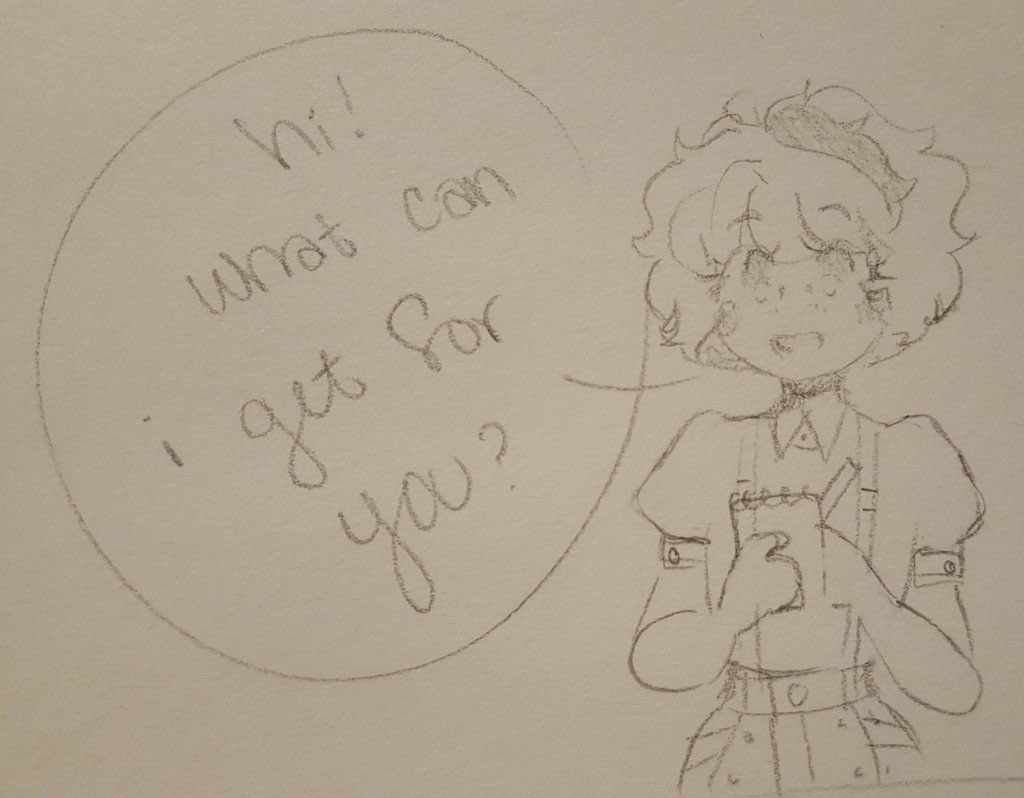 hi!
what can
i get for
you?